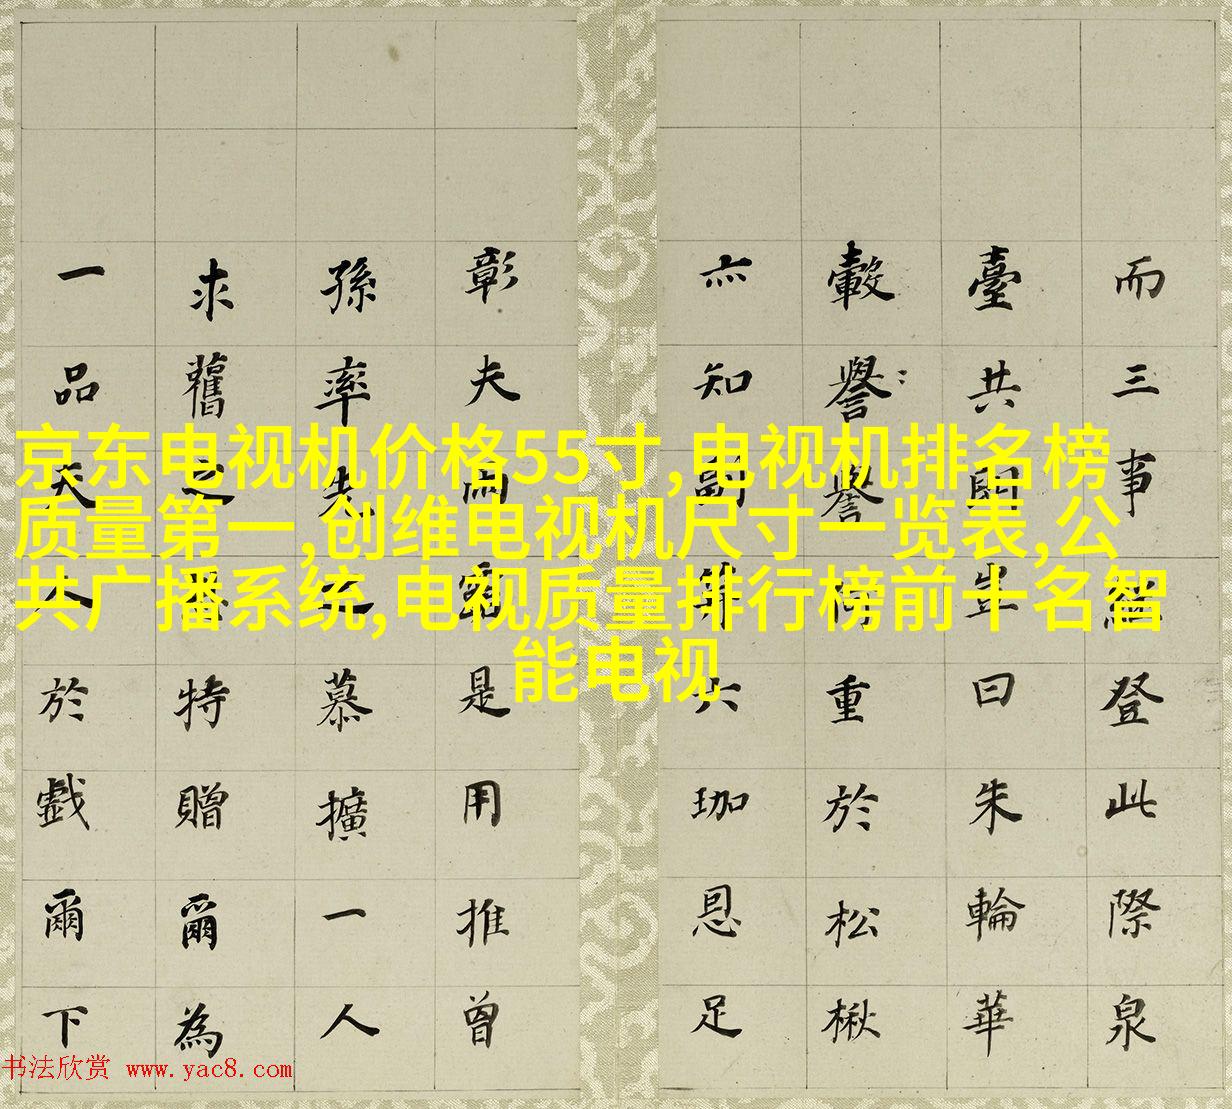 京东电视机价格55寸,电视机排名榜
质量第一,创维电视机尺寸一览表,公
共广播系统,电视质量排行榜前十名智
能电视
而三事登此際泉
臺共豈曰朱輪華
轂譽譽何重於松楸
亦知副笄六珈恩足
彰夫雨露是用推曾
孫率先之慕擴一人
求舊之恩特贈爾為
一品夫人於戲爾下
书法欣赏 www.yac8.com